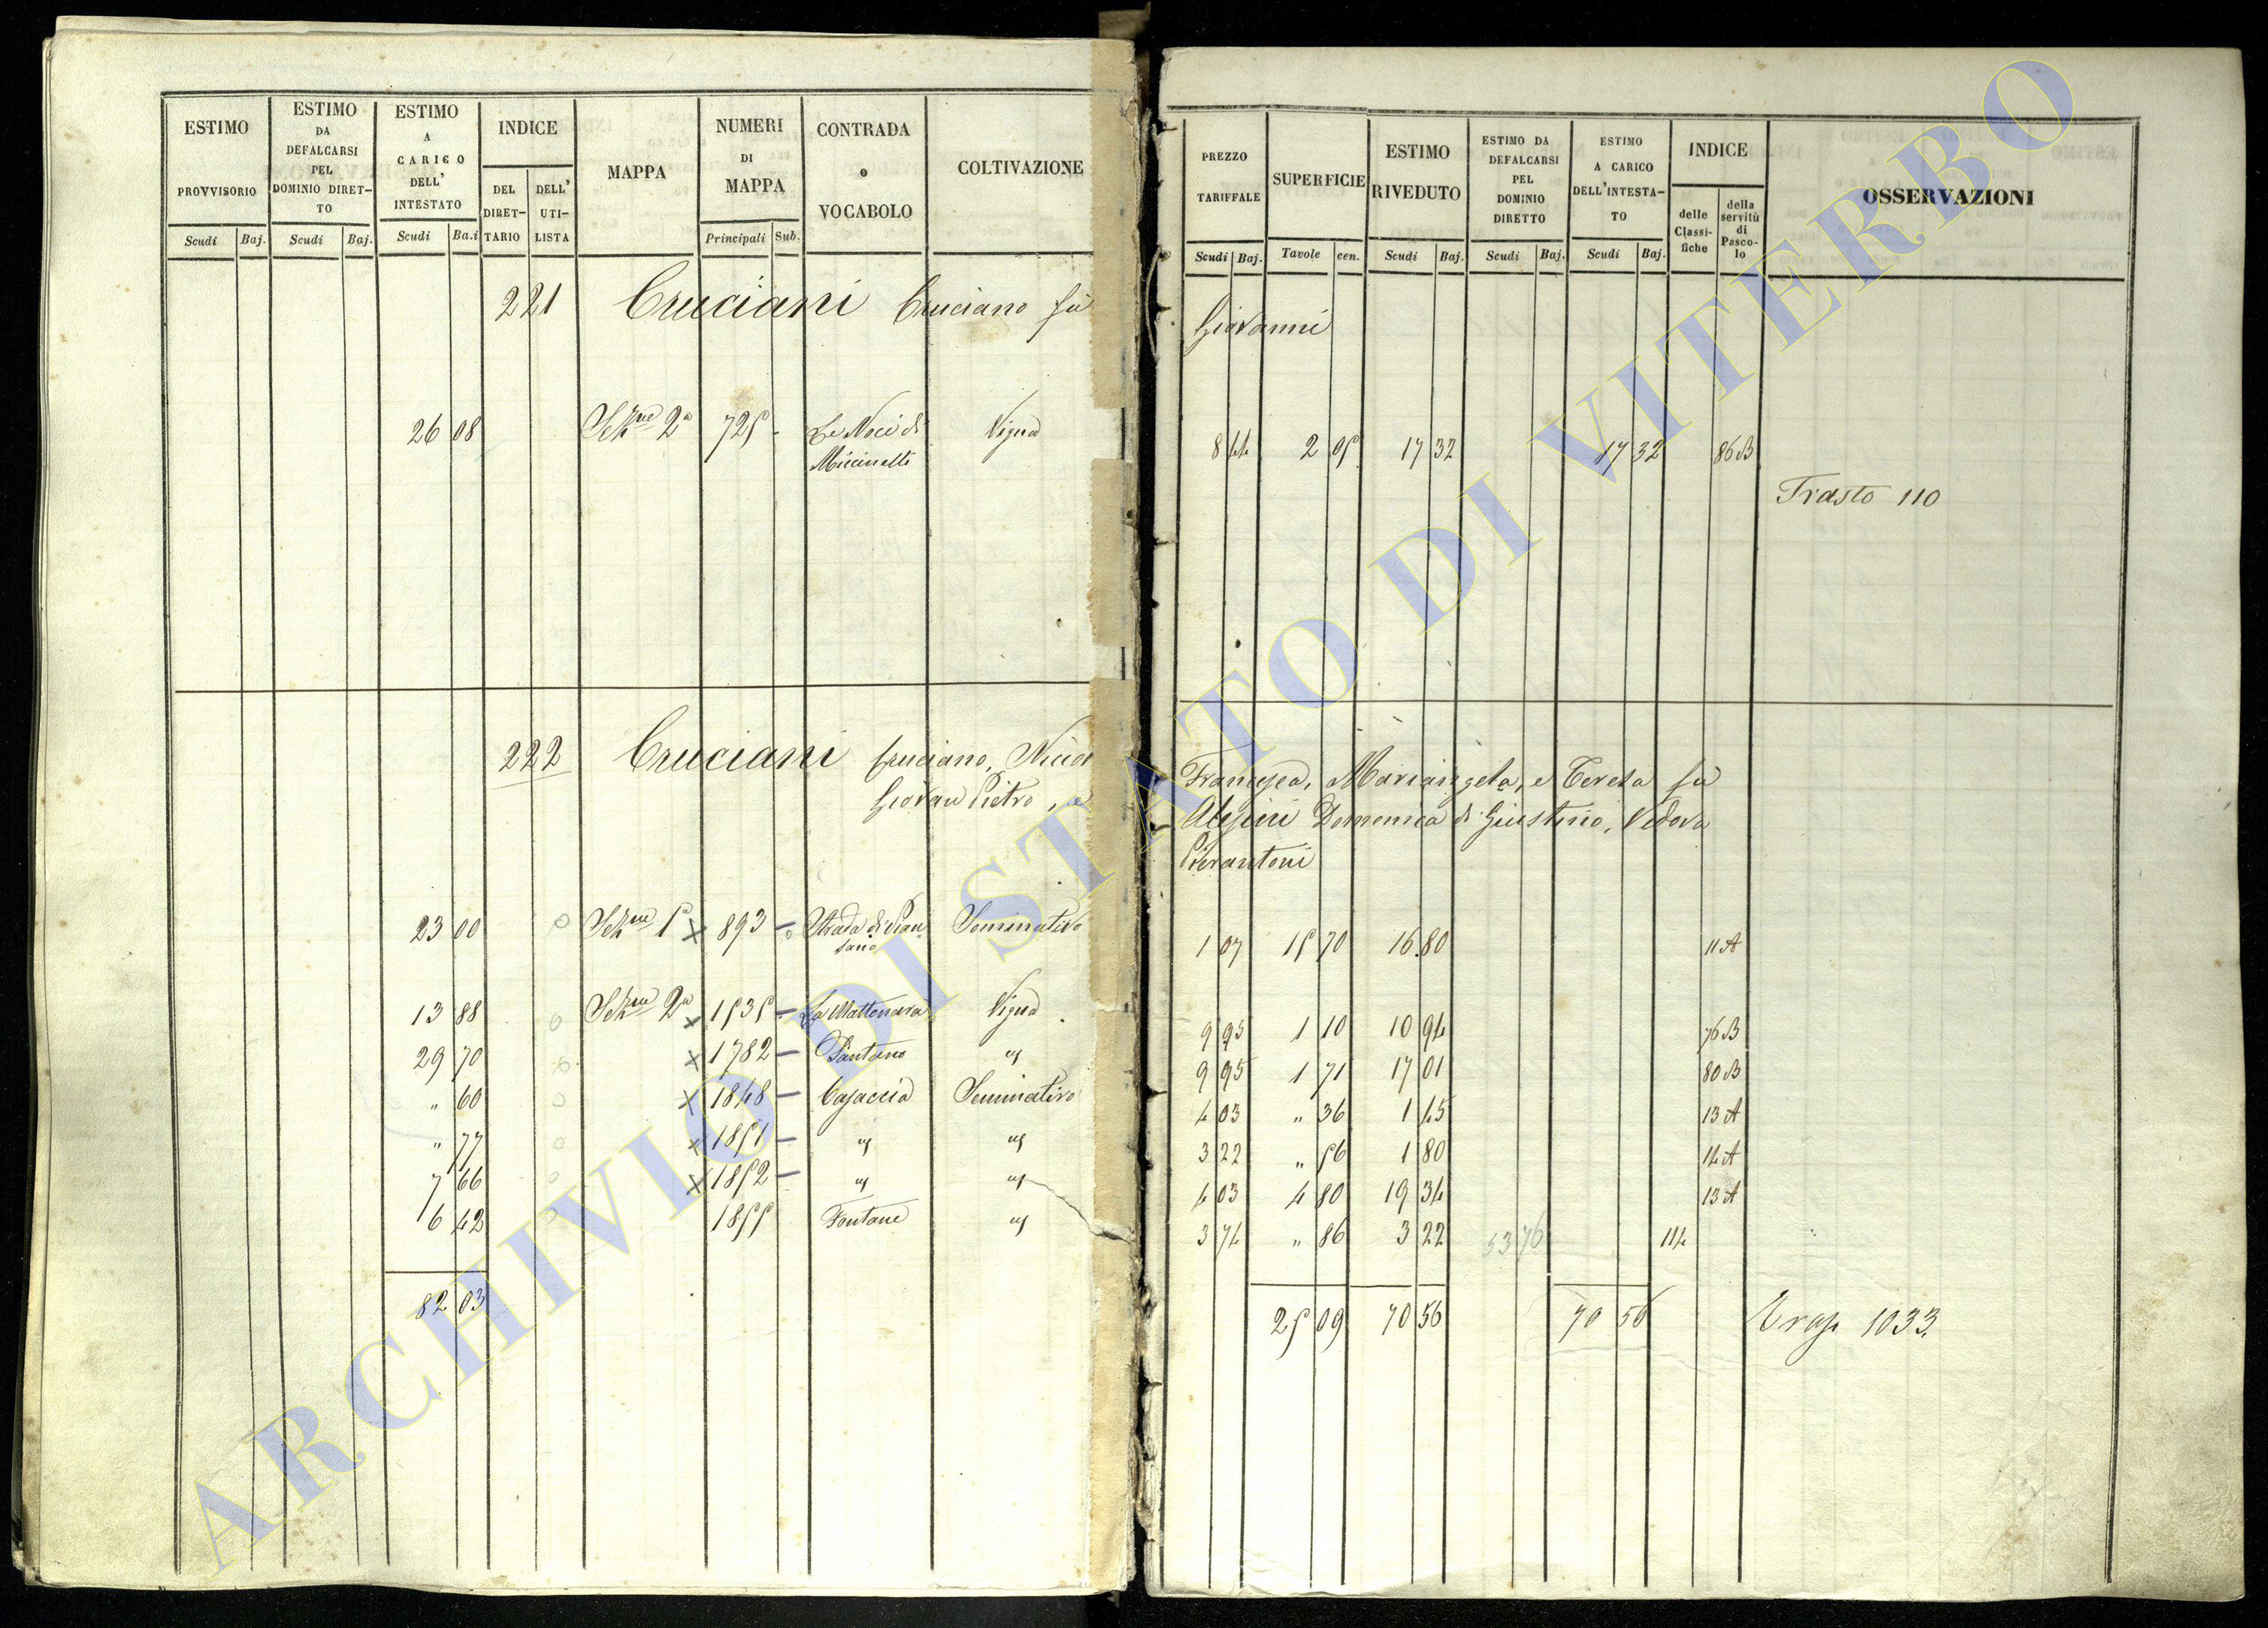 ESTIMO PROVVISORIO Scudi Baj.
ESTIMO DA DEFALCARSI PEL DOMINIO DIRET-TO Scudi Baj.
ESTIMO A CARICO DELL' INTESTATO Scudi Ba.i
INDICE DEL DIRET-TARIO DELL' UTI-LISTA
MAPPA
NUMERI DI MAPPA Principali Sub.
CONTRADA o VOCABOLO
COLTIVAZIONE
PREZZO TARIFFALE Scudi Baj.
SUPERFICIE Tavole cen.
ESTIMO RIVEDUTO Scudi Baj.
ESTIMO DA DEFALCARSI PEL DOMINIO DIRETTO Scudi Baj.
ESTIMO A CARICO DELL'INTESTA-TO Scudi Baj.
INDICE delle Classi-fiche della servitù di Pasco-lo
OSSERVAZIONI
221 Cruciani Cruciano fu Giovanni
26 08 Sezne 2a 725 - Le Noci di Vigna 8 44 2 05 17 32 17 32 86 B
Miccinelli
Trasto 110
222 Cruciani Cruciano, Francesca, Mariangela, e Teresa fu
Giovan Pietro, e Domenica di Giustino, Vedova
Pierantoni
23 00 Sezne 1a X 893 - Strada di Pian Seminativo 1 07 15 70 16 80 11 A
sano
13 88 Sezne 2a X 1535 - La Mattonara Vigna 9 95 1 10 10 94 76 B
29 70 X 1782 - Pantano " 9 95 1 71 17 01 80 B
" 60 X 1848 - Casaccia Seminativo 4 03 " 36 1 45 13 A
" 77 X 1851 - " " 3 22 " 56 1 80 14 A
7 66 X 1852 - " " 4 03 4 80 19 34 13 A
6 42 1855 Fontane " 3 74 " 86 3 22 53 76 114
82 03 25 09 70 56 70 56 Trasp 1033.
ARCHIVIO DI STATO DI VITERBO